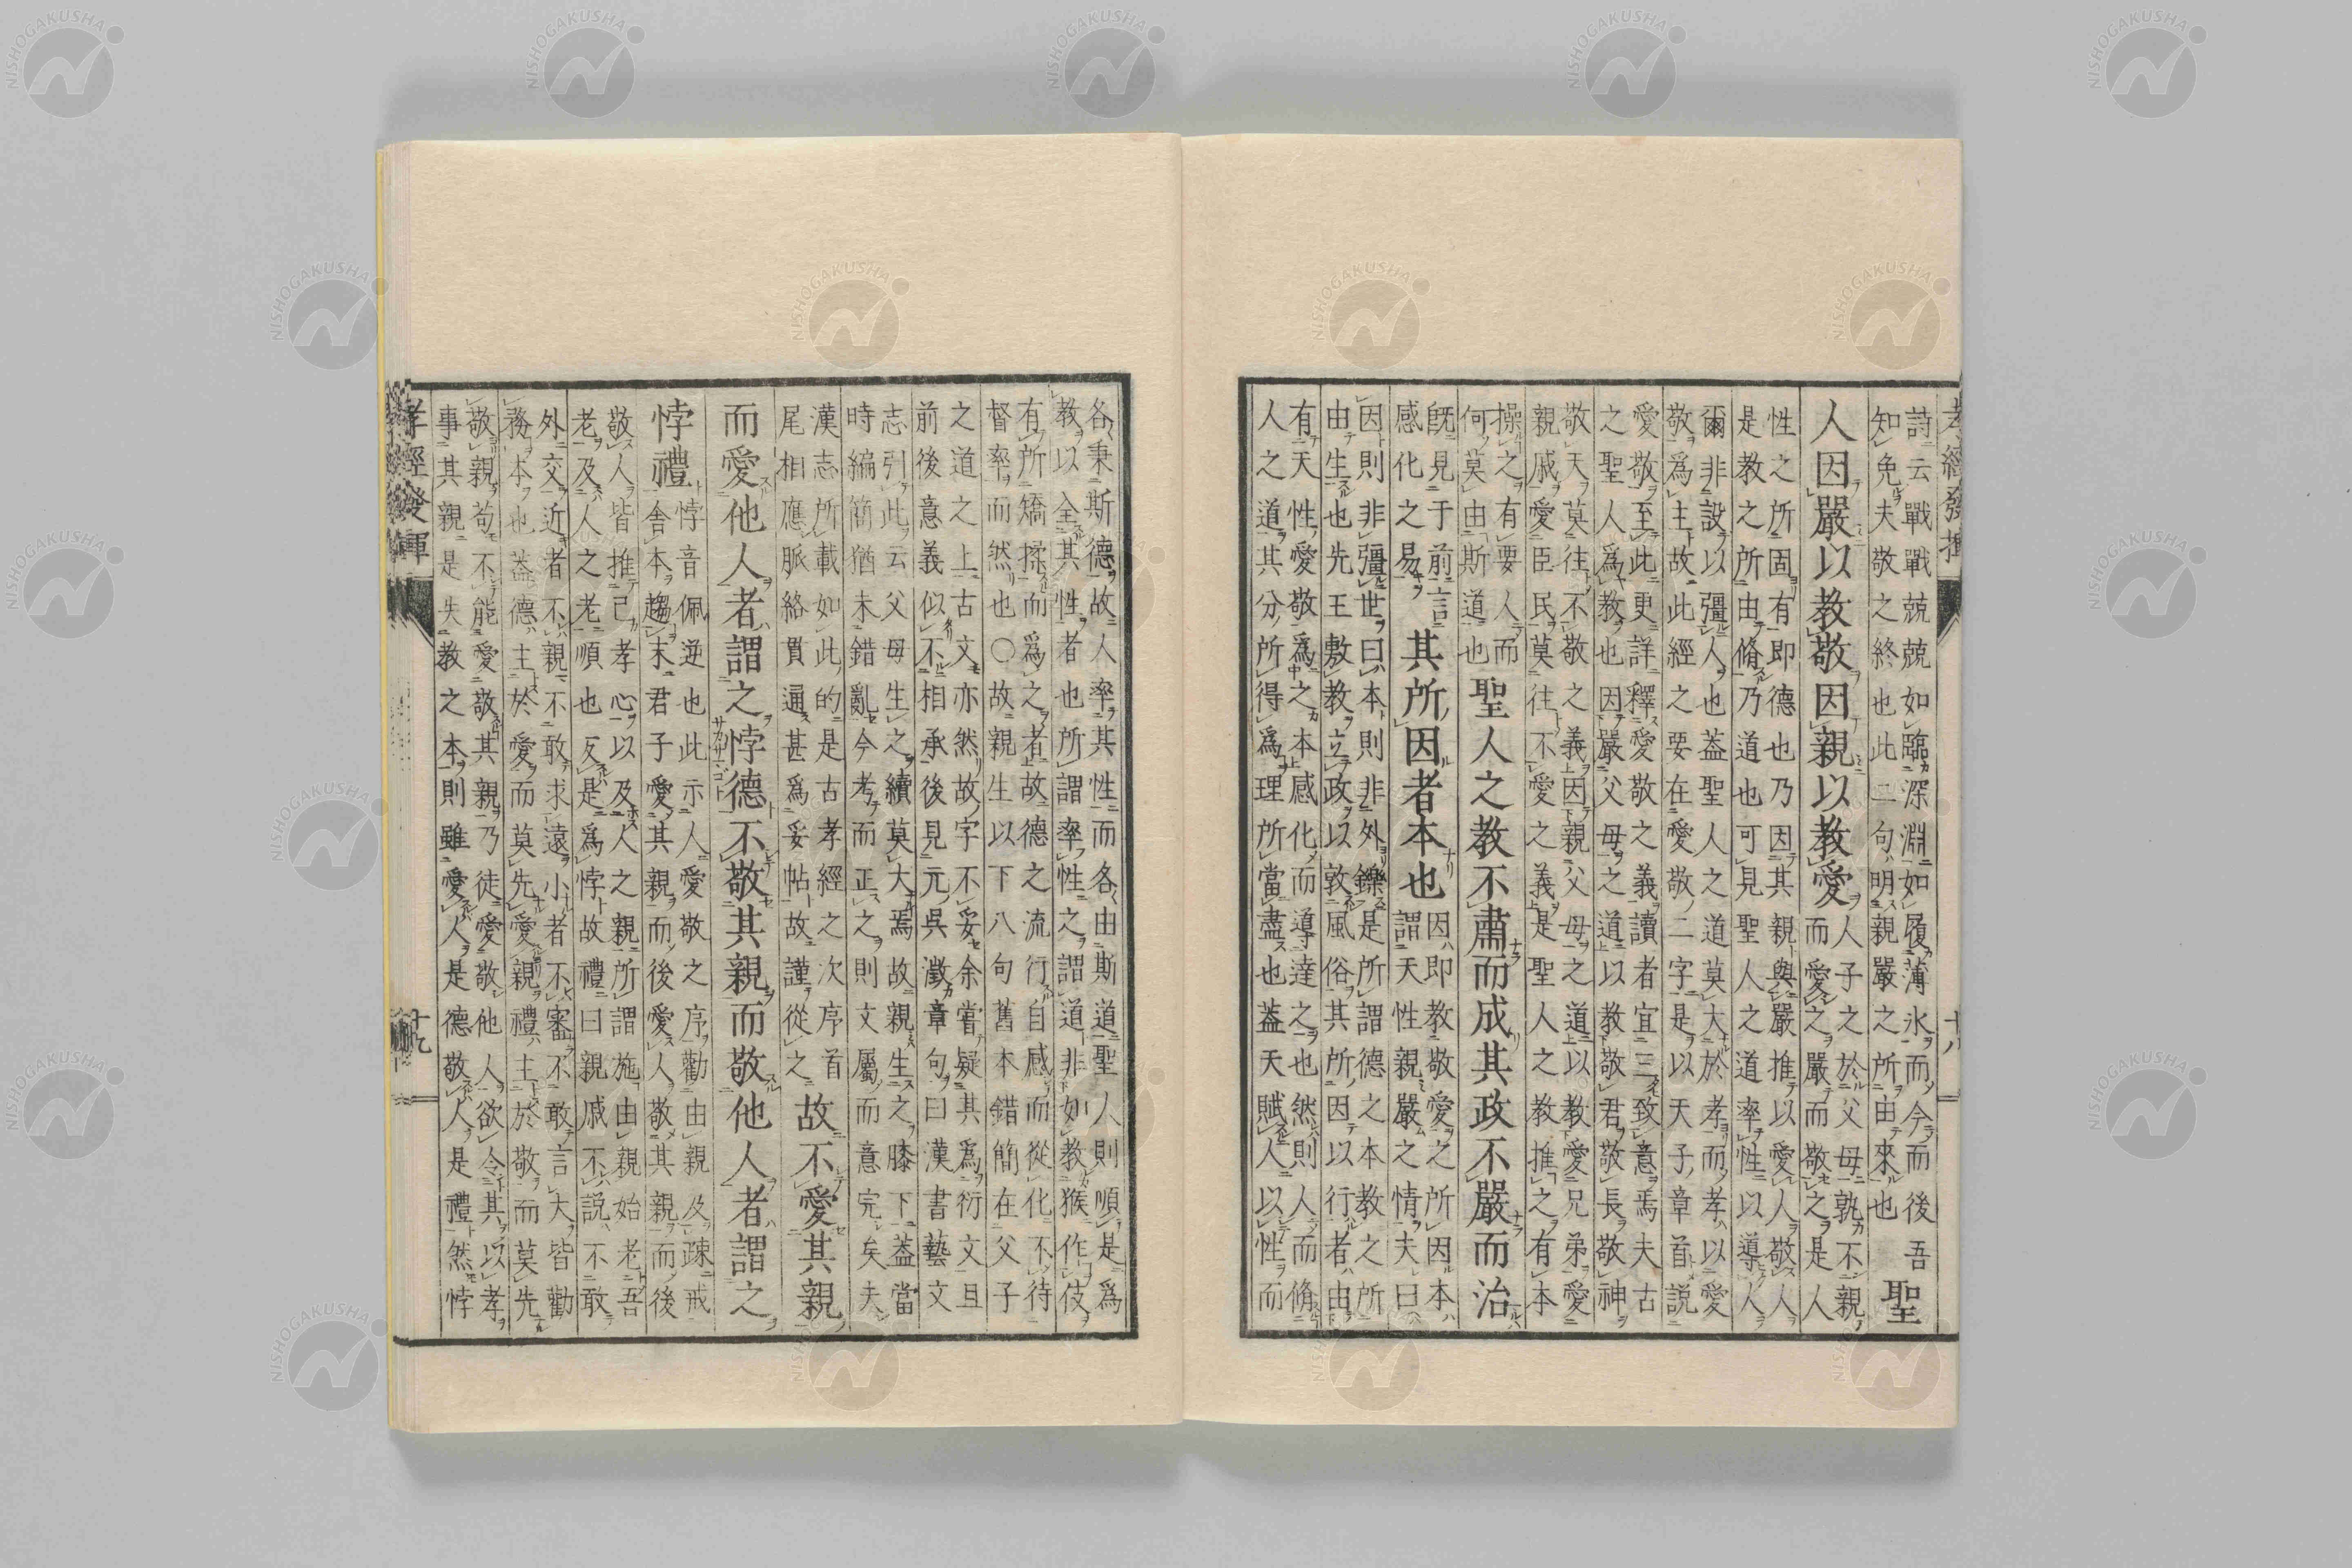 孝經發揮 十八
詩云戰戰兢兢如臨深淵如履薄氷而今而後吾
知免夫敬之終也此二句明親嚴之所由來也
聖
人因嚴以教敬因親以教愛
人子之於父母孰不親
而愛之嚴而敬之是人
性之所固有即德也乃因其親與嚴推以愛人敬人
是教之所由脩乃道也可見聖人之道率性以導人
爾非設以彊人也葢聖人之道莫大於孝而孝以愛
敬爲主故此經之要在愛敬二字是以天子章首説
愛敬至此更詳釋愛敬之義讀者宜三致意焉夫古
之聖人爲教也因嚴父母之道以教敬君敬長敬神
敬天莫往不敬之義因親父母之道以教愛兄弟愛
親戚愛臣民莫往不愛之義是聖人之教推之有本
操之有要人而
何莫由斯道也
聖人之教不肅而成其政不嚴而治
旣見于前言
感化之易
其所因者本也
因即教敬愛之所因本
謂天性親嚴之情夫曰
因則非彊世曰本則非外鑠是所謂德之本教之所
由生也先王敷教立政以敦風俗其所因以行者由
有天性愛敬爲之本感化而導達之也然則人而脩
人之道其分所得爲理所當盡也葢天賦人以性而
各秉斯德故人率其性而各由斯道聖人則順是爲
教以全其性者也所謂率性之謂道非如教猴作伎
有所矯揉而爲之者故德之流行自感而從化不待
督率而然也〇故親生以下八句舊本錯簡在父子
之道之上古文亦然故字不妥余嘗疑其爲衍文且
前後意義似不相承後見元吳澂章句曰漢書藝文
志引此云父母生之續莫大焉故親生之膝下葢當
時編簡猶未錯亂今考而正之則文屬而意完矣夫
漢志所載如此的是古孝經之次序首
尾相應脈絡貫通甚爲妥帖故謹從之
故不愛其親
而愛他人者謂之悖德不敬其親而敬他人者謂之
悖禮
悖音佩逆也此示人愛敬之序勸由親及疎戒
舍本趨末君子愛其親而後愛人敬其親而後
敬人皆推己孝心以及人之親所謂施由親始老吾
老及人之老順也反是爲悖故禮曰親戚不説不敢
外交近者不親不敢求遠小者不審不敢言大皆勸
務本也葢德主於愛而莫先愛親禮主於敬而莫先
敬親苟不能愛敬其親乃徒愛敬他人欲令其以孝
事其親是失教之本則雖愛人是德敬人是禮然悖
孝經發揮 十九
NISHOGAKUSHA